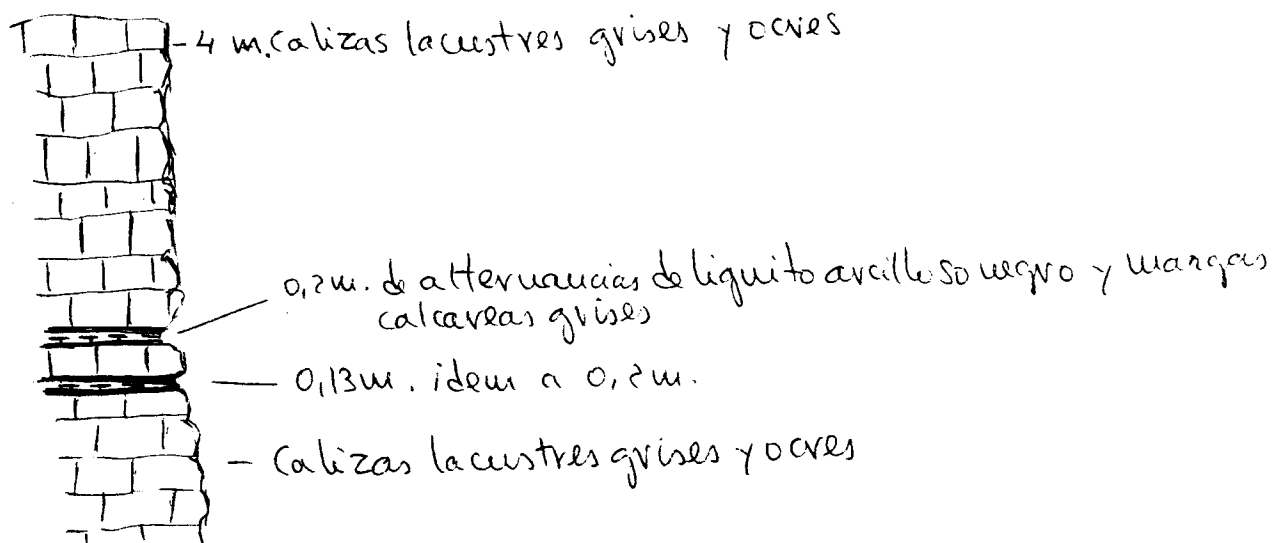 4 m. Calizas lacustres grises y ocres
0,2 m. de alternancias de lignito arcilloso negro y margas
calcareas grises
0,13 m. idem a 0,2 m.
Calizas lacustres grises y ocres